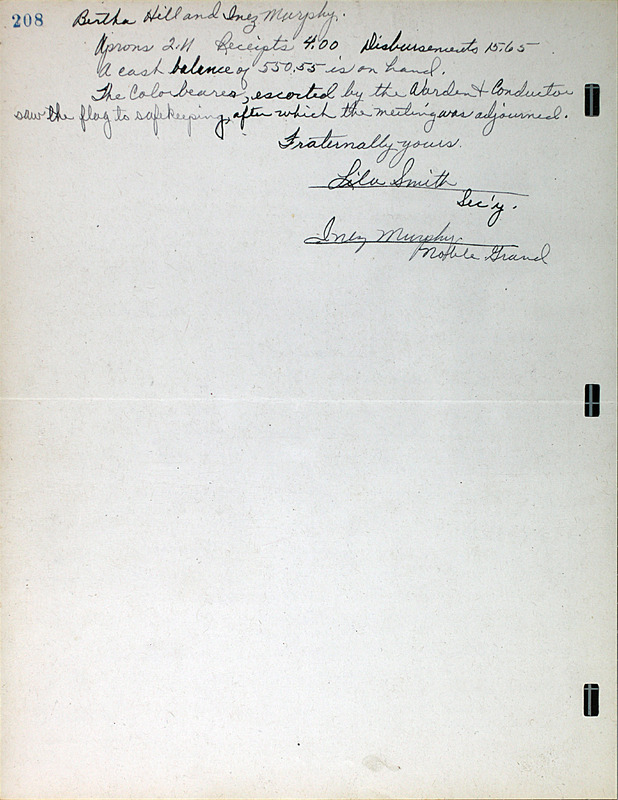 208
Bertha Hill and Inez Murphy.
Aprons 2.11 Receipts 4.00 Disbursements 15.65
A cash balance of 550.55 is on hand.
The Colorbearer, escorted by the Warden & Conductor
saw the flag to safekeeping, after which the meeting was adjourned.
Fraternally yours.
Lila Smith
Sec'y.
Inez Murphy
Noble Grand